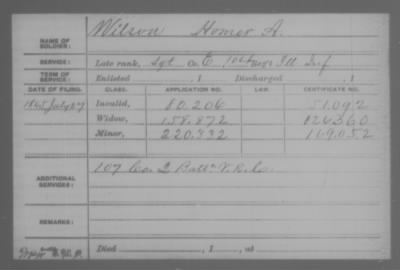 NAME OF SOLDIER: Wilson Homer A.
SERVICE: Late rank, Sgt Co. E, 104 Regt Ill Inf
TERM OF SERVICE: Enlisted , 1 Discharged , 1
DATE OF FILING. CLASS. APPLICATION NO. LAW. CERTIFICATE NO.
1865 July 27 Invalid, 80.206 51.092
Widow, 158.872 126360
Minor, 220.332 169.052
ADDITIONAL SERVICES: 107 Co. 2 Batt. V.R.C.
REMARKS:
Died , 1 , at